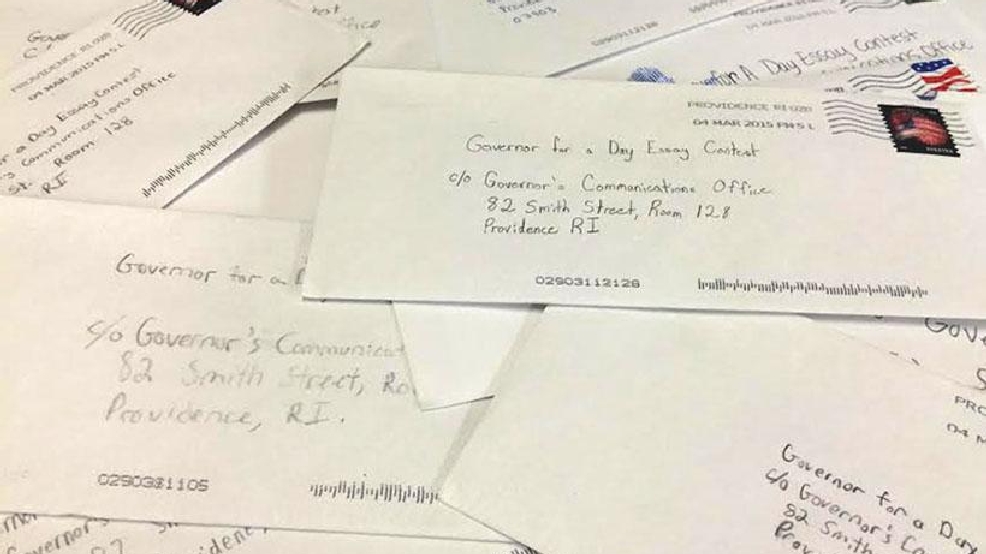 Gove
PROVIDENCE RI 020
04 MAR 2015 PM 5 L
r a Day Essay Contest
Communications Office
Room 128
St. RI
03903
n A Day Essay Contest
Office
PROVIDENCE RI 020
04 MAR 2015 PM 5 L
Governor for a Day Essay Contest
c/o Governor's Communications Office
82 Smith Street, Room 128
Providence RI
02903112128
Governor for a
c/o Governor's Communicat
82 Smith Street, Ro
Providence, RI.
0290381105
Gove
PRO
04 M
Governor for a Day
c/o Governor's Co
82 Smith
Prov
vernor's
ident,